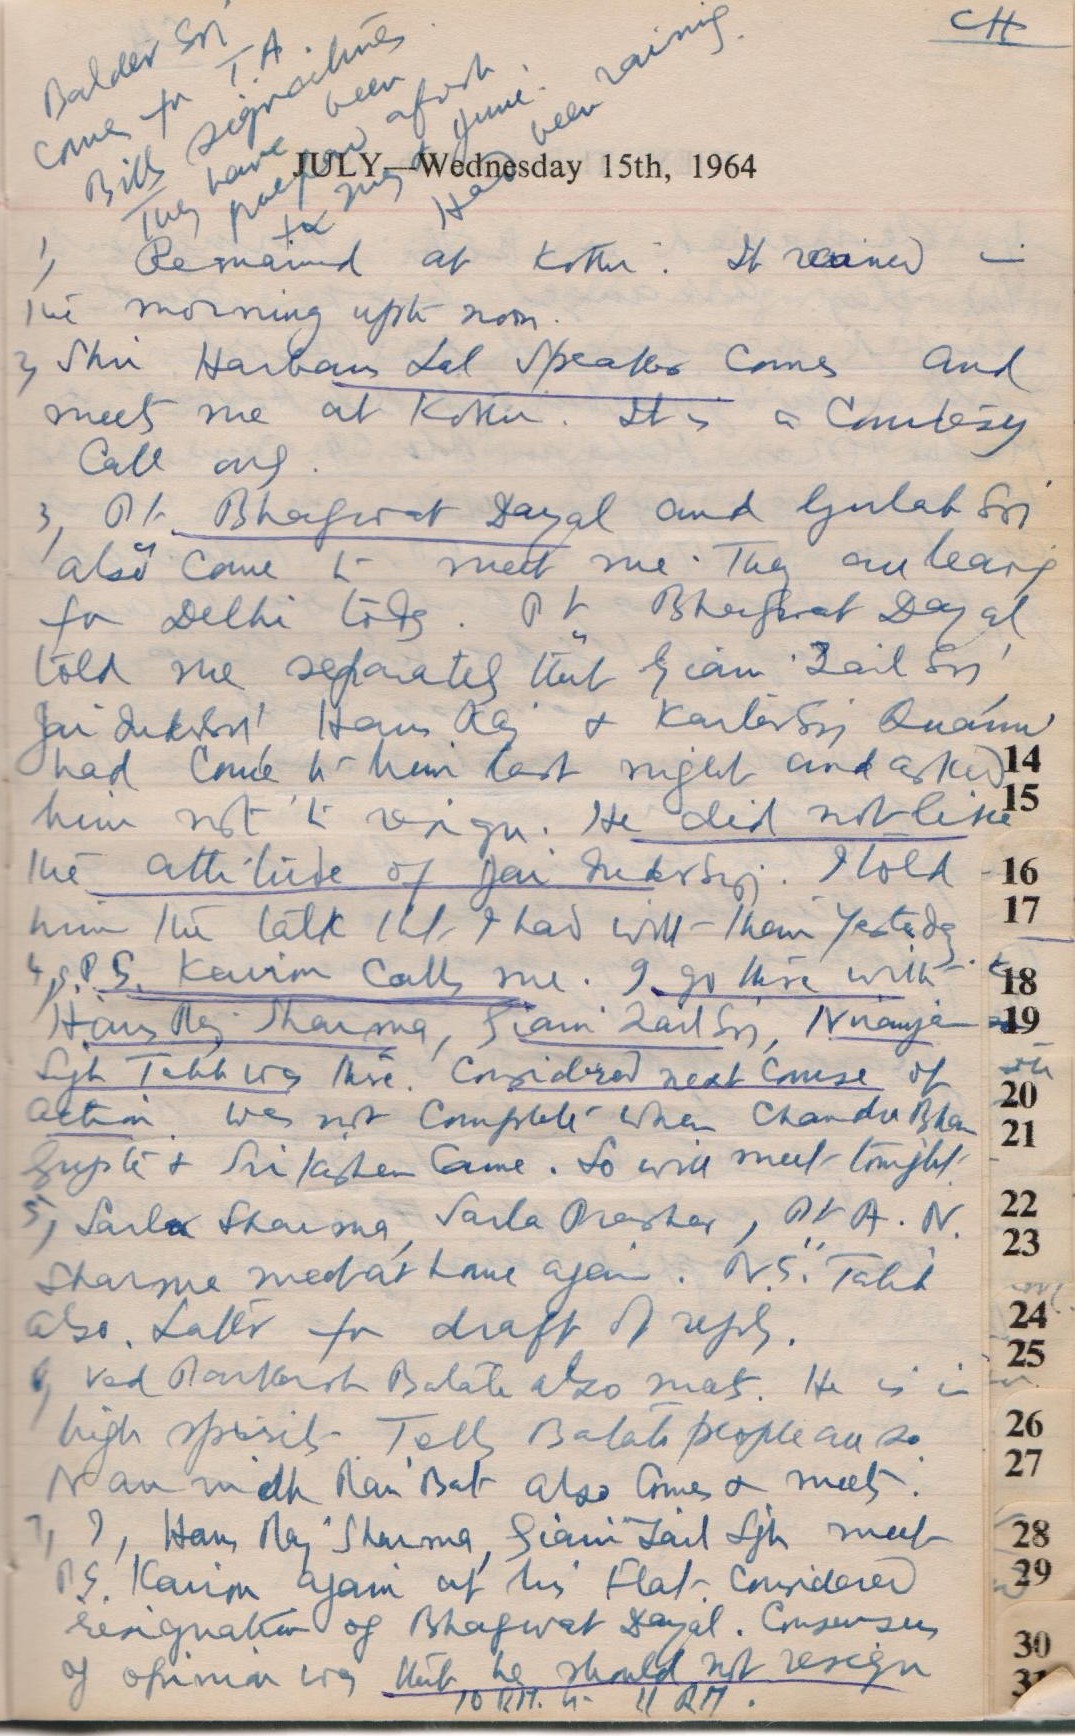 CH
Baldev Sri
comes for T.A.
Bills signatures
They have been
prepared afresh.
for May & June.
Has been raining
JULY—Wednesday 15th, 1964
1, Remained at Kothi. It rained in
the morning upto noon.
2, Shri Harbans Lal Speaker Comes and
meets me at Kothi. It is a Courtesy
Call only.
3, Pt. Bhagwat Dayal and Gulab Sri
also come to meet me. They are leaving
for Delhi today. Pt. Bhagwat Dayal
told me separately that Giani Zail Sri
Jai Inder Sri Hans Raj & Kartar Sri
had come to him last night and asked
him not to resign. He did not like
the attitude of Jai Inder Sri. I told
him the talk that I had with them yesterday.
4, P.S. Kairon Calls me. I go there with
Hans Raj Sharma, Giani Zail Sri, Niranjan
Sgh Talib was there. Considered next Course of
action. Was not Complete when Chandra Bhan
Gupta & Sri Kishen Came. So will meet tonight.
5, Sarla Sharma, Sarla Prashar, Pt. A. N.
Sharma meet at home again. N.S. Talib
also. Latter for draft of reply.
6, Ved Parkash Batala also meets. He is in
high spirits. Tells Batala people are so
Naunidh Rai Bat also Comes & meets.
7, I, Hans Raj Sharma, Giani Zail Sgh meet
P.S. Kairon again at his Flat. Considered
resignation of Bhagwat Dayal. Consensus
of opinion was that he should not resign
10 P.M. to 11 P.M.
14
15
16
17
18
19
20
21
22
23
24
25
26
27
28
29
30
31